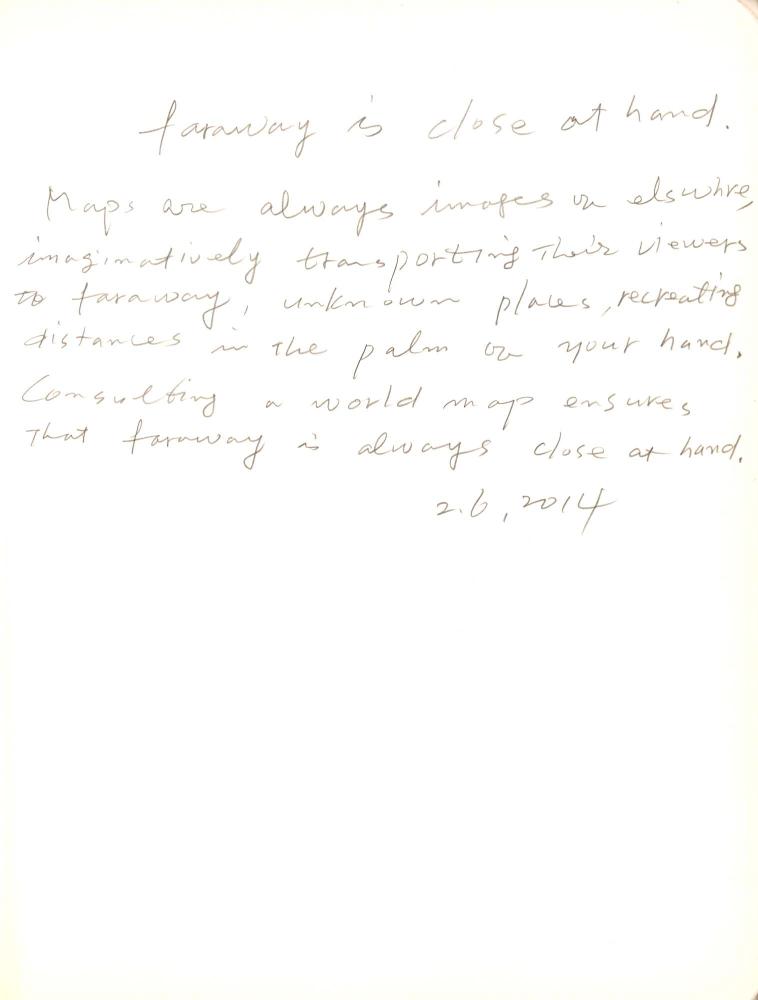 faraway is close at hand.
Maps are always images on elswhre,
imaginatively transporting their viewers
to faraway, unknown places, recreating
distances in the palm on your hand.
Consulting a world map ensures
that faraway is always close at hand.
2.6, 2014